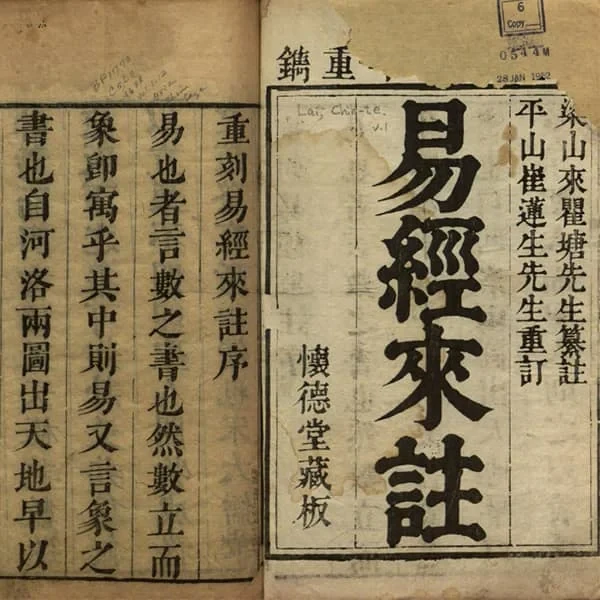 重鐫
梁山來瞿塘先生纂註
平山崔蓮生先生重訂
易經來註
懷德堂藏板
6
Copy
0544M
28 JAN 1982
Lai, Chih-te.
v.1
重刻易經來註序
易也者言數之書也然數立而
象卽寓乎其中則易又言象之
書也自河洛兩圖出天地早以